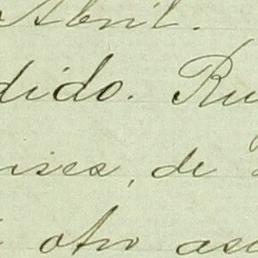 Abril.
dido. Ru
ises, de
otro as